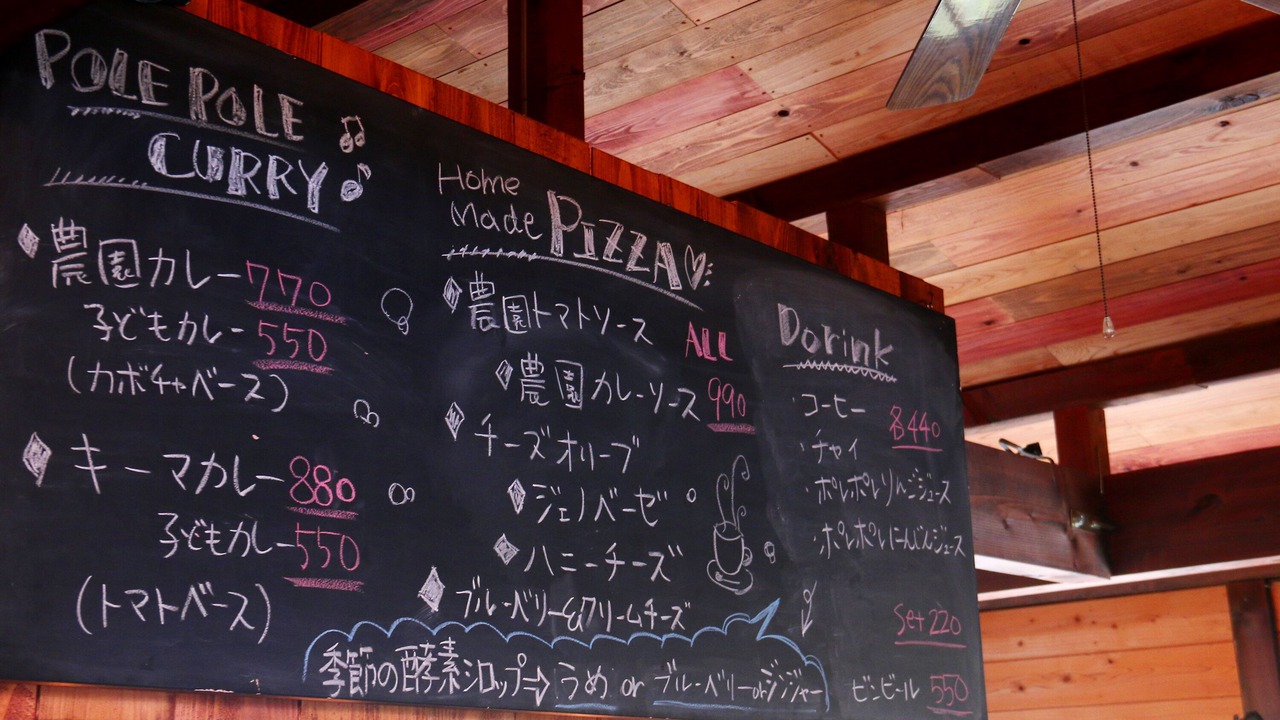 POLE POLE
CURRY
農園カレー 770
子どもカレー 550
(カボチャベース)
キーマカレー 880
子どもカレー 550
(トマトベース)
Home
Made PIZZA
農園トマトソース
ALL
農園カレーソース 990
チーズオリーブ
ジェノベーゼ
ハニーチーズ
ブルーベリー&クリームチーズ
季節の酵素シロップ→うめ or ブルーベリー or ジンジャー
Dorink
・コーヒー 各440
・チャイ
・ポレポレりんごジュース
・ポレポレにんじんジュース
Set 220
ビンビール 550